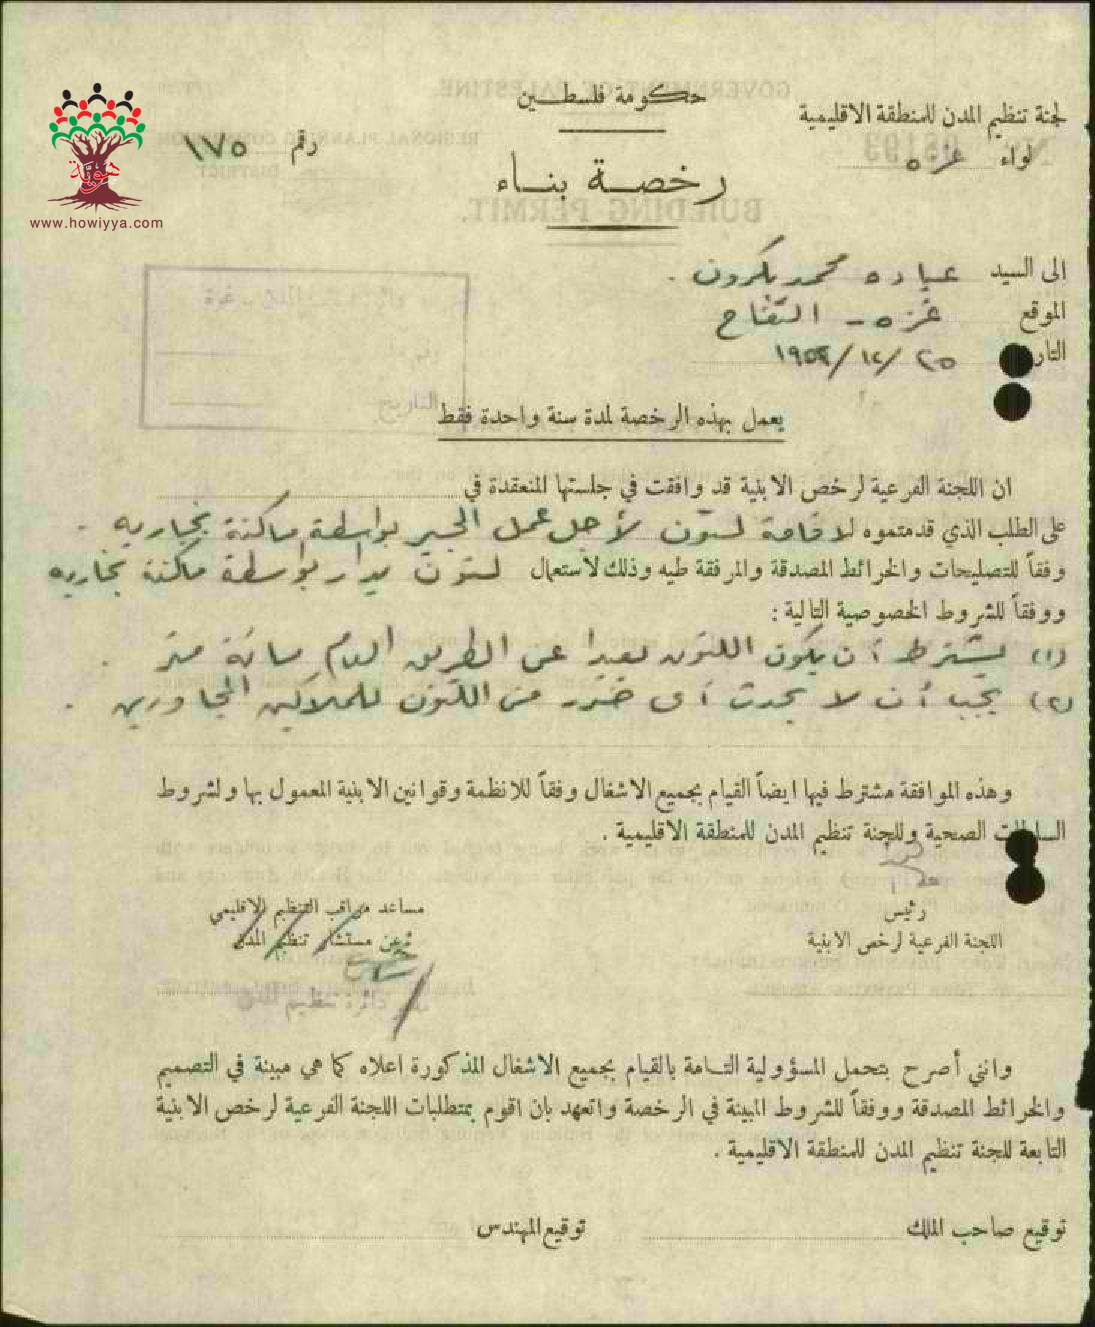 حكومة فلسطين
لجنة تنظيم المدن للمنطقة الاقليمية
لواء غزه
رقم ١٧٥
هوية
www.howiyya.com
رخصة بناء
الى السيد عياده محمد بكرون .
الموقع غزه - التفاح
التار ٢٥ /١٢/ ١٩٥٢
يعمل بهذه الرخصة لمدة سنة واحدة فقط
ان اللجنة الفرعية لرخص الابنية قد وافقت في جلستها المنعقدة في
على الطلب الذي قدمتموه لاقامة لتون لأجل عمل الجير بواسطة ماكنة بخاريه .
وفقاً للتصليحات والخرائط المصدقة والمرفقة طيه وذلك لاستعمال لتون يدار بواسطة ماكنة بخاريه
ووفقاً للشروط الخصوصية التالية :
(١) يشترط أن يكون اللتون بعيدا عن الطريق العام مائة متر .
(٢) يجب أن لا يحدث أى ضرر من اللتون للملاكين المجاورين .
وهذه الموافقة مشترط فيها ايضاً القيام بجميع الاشغال وفقاً للانظمة وقوانين الابنية المعمول بها ولشروط
السلطات الصحية وللجنة تنظيم المدن للمنطقة الاقليمية .
رئيس
اللجنة الفرعية لرخص الابنية
مساعد مراقب التنظيم الاقليمي
عن مستشار تنظيم المدن
دائرة تنظيم المدن
وانني أصرح بتحمل المسؤولية التامة بالقيام بجميع الاشغال المذكورة اعلاه كما هي مبينة في التصميم
والخرائط المصدقة ووفقاً للشروط المبينة في الرخصة واتعهد بان اقوم بمتطلبات اللجنة الفرعية لرخص الابنية
التابعة للجنة تنظيم المدن للمنطقة الاقليمية .
توقيع صاحب الملك
توقيع المهندس